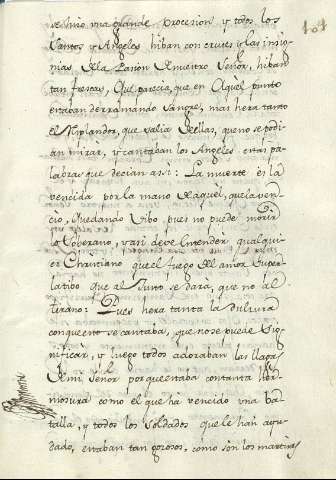 101
se hizo una grande procesion y todos los
Santos y Angeles hiban con cruces y las insig
nias dela Pasion de nuestro Señor, hiban
tan frescas, Que parecia, que en Aquel punto
estaban derramando sangre, mas hera tanto
el Rresplandor, que salia de ellas, que no se podi
an mirar, y cantaban los Angeles estas pa
labras que decian asi: La muerte es la
vencida por la mano de aquel, que la ven
cio, Quedando Vibo, pues no puede morir
lo Soberano, y asi debe entender qualqui
er Christiano que el fuego del amor super
latibo que al Justo se dara, que no al
tirano: Pues hera tanta la dulzura
con que esto se cantaba, que no se puede sig
nificar, y luego todos adoraban las llagas
de mi Señor porque estaba con tanta her
mosura como el que ha vencido una ba
talla, y todos los soldados que le han ayu
dado, estaban tan gozosos, como son los martires